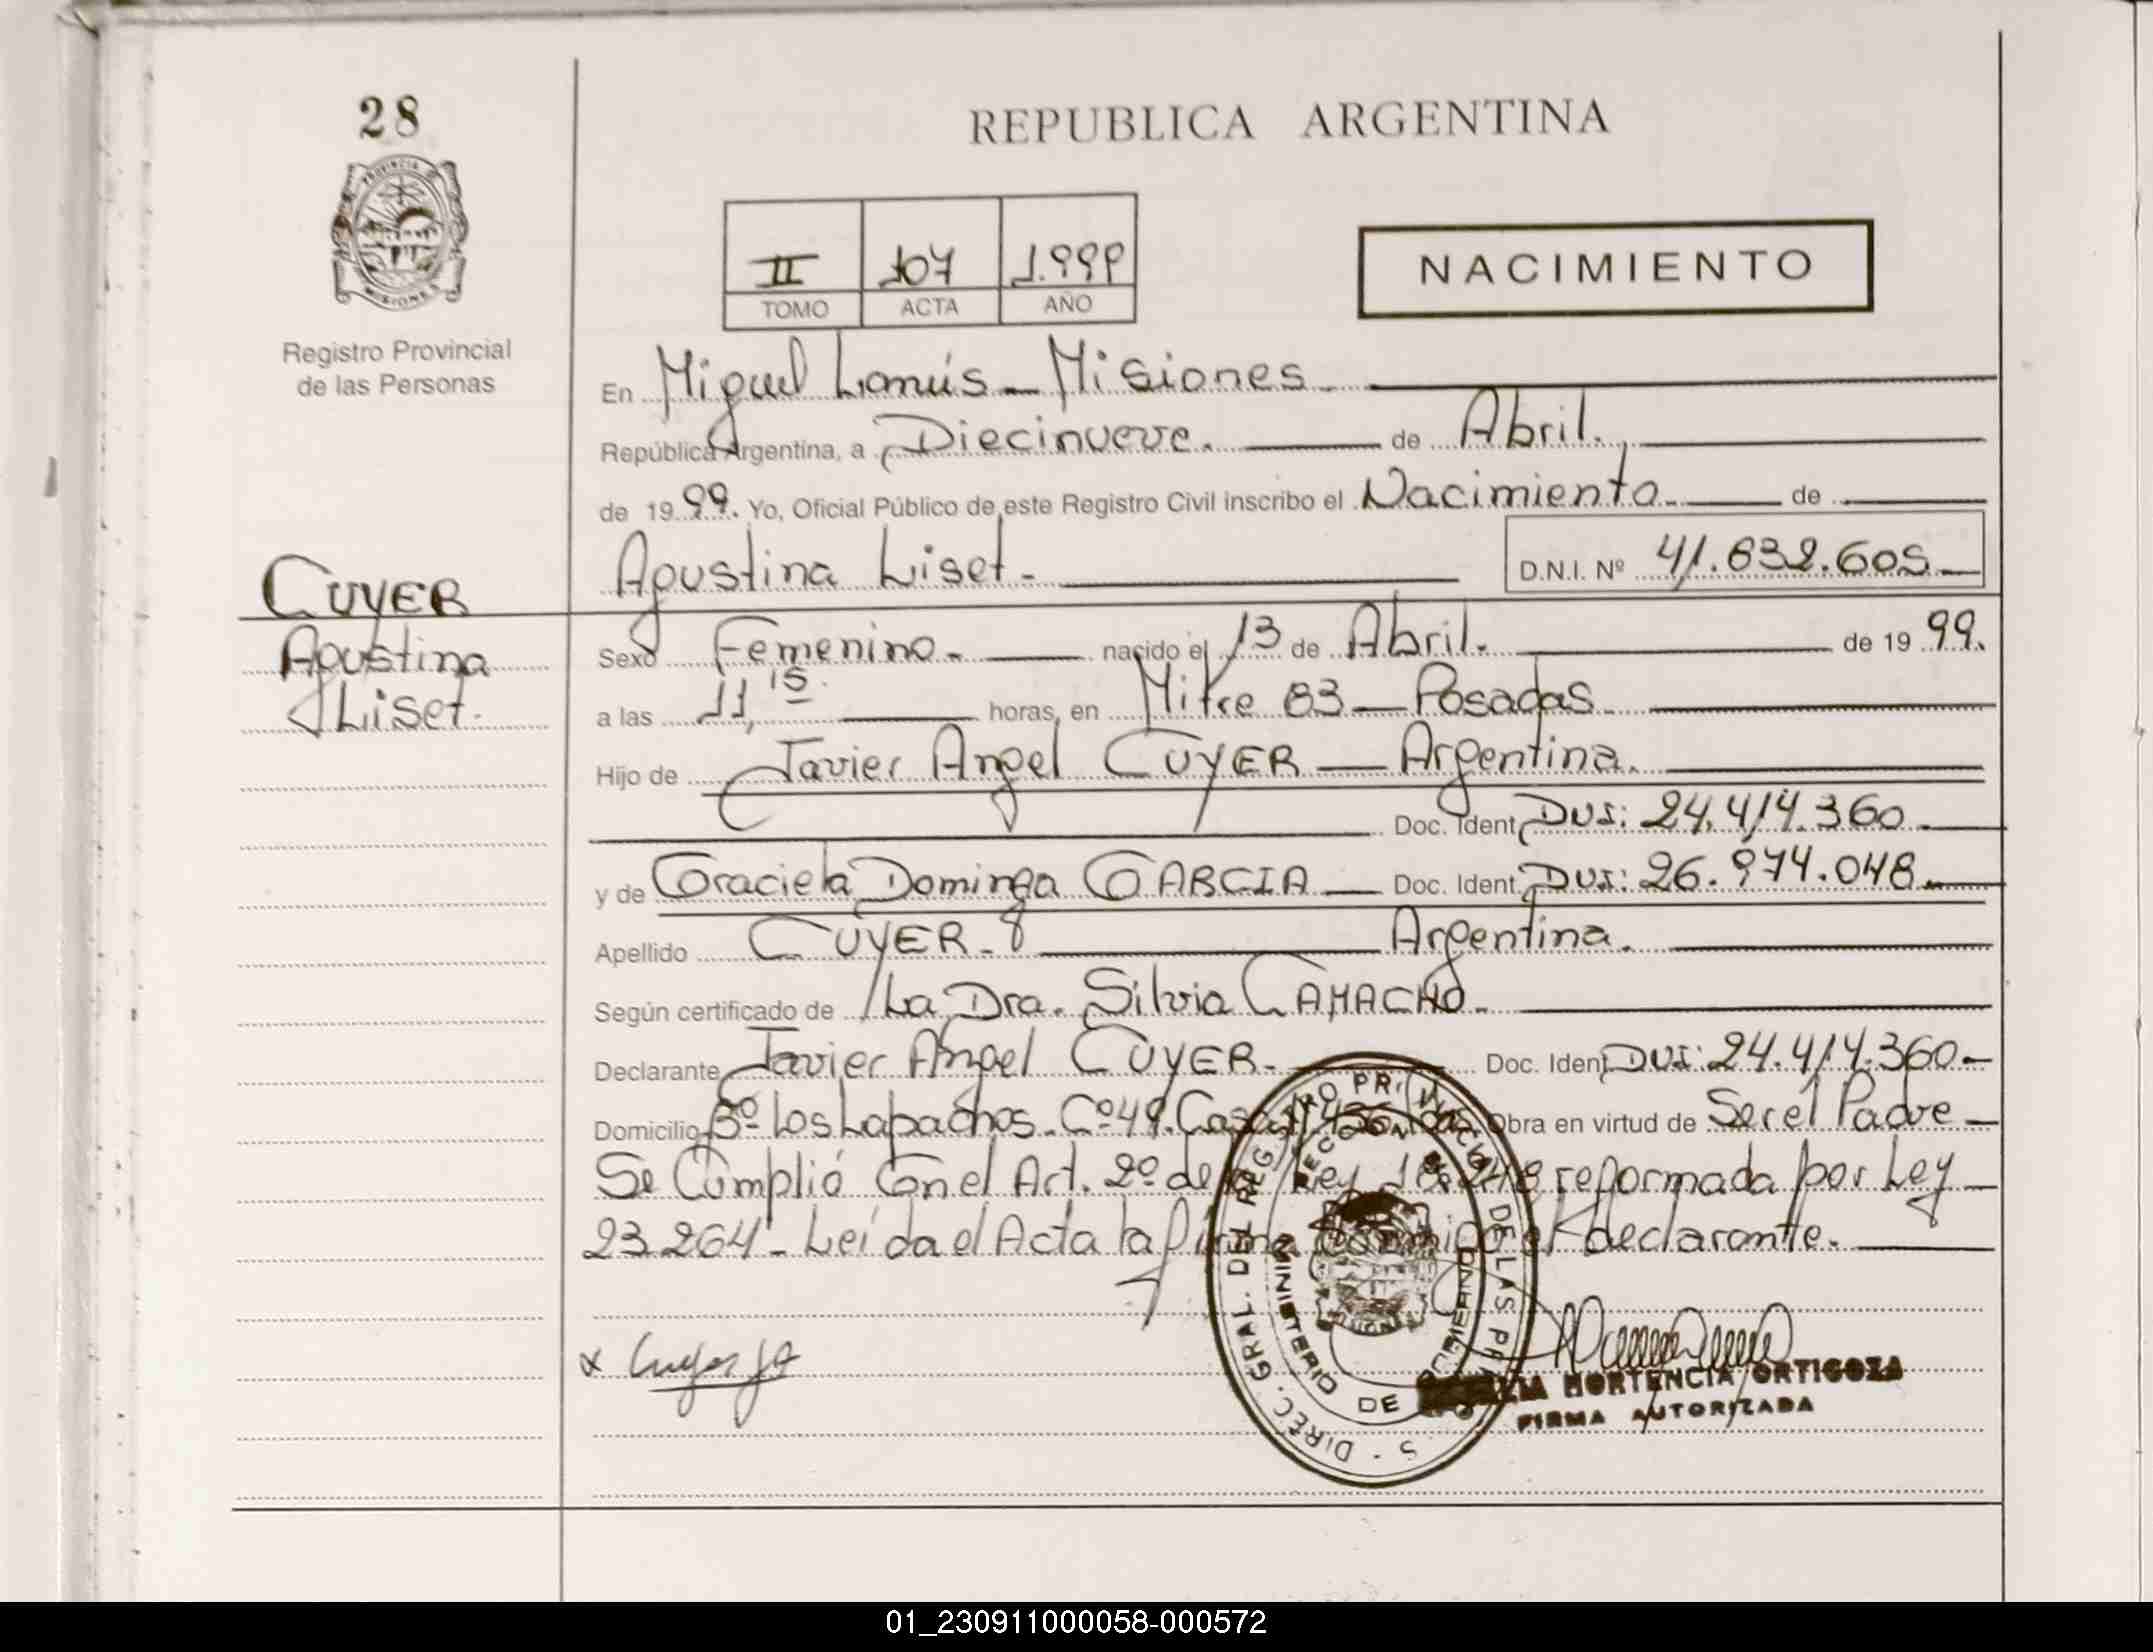 28
REPUBLICA ARGENTINA
PROVINCIA D
MISIONES
II 107 1.999
TOMO ACTA AÑO
NACIMIENTO
Registro Provincial
de las Personas
En Miguel Lanús - Misiones.
República Argentina, a Diecinueve. de Abril.
de 1999. Yo, Oficial Público de este Registro Civil inscribo el Nacimiento. de
Agustina Liset. D.N.I. Nº 41.632.605
CUYER
Agustina
Liset.
Sexo Femenino. nacido el 13 de Abril. de 1999.
a las 11,15 horas, en Mitre 83 - Posadas
Hijo de Javier Angel CUYER - Argentina.
Doc. Ident. DUI: 24.414.360
y de Graciela Dominga GARCIA - Doc. Ident. DUI: 26.974.048
Apellido CUYER - Argentina.
Según certificado de La Dra. Silvia CAMACHO.
Declarante Javier Angel CUYER. Doc. Ident DUI: 24.414.360
Domicilio Bº Los Lapachos. Cº49. Casa Obra en virtud de Ser el Padre
Se Cumplió Con el Art. 2º de la Ley 18.248 reformada por Ley
23.264. Leída el Acta la firma Conmigo el declarante.
DIREC. GRAL. DEL REGISTRO PROVINCIAL DE LAS
MINISTERIO DE GOBIERNO
HORTENCIA ORTIGOZA
FIRMA AUTORIZADA
01_230911000058-000572